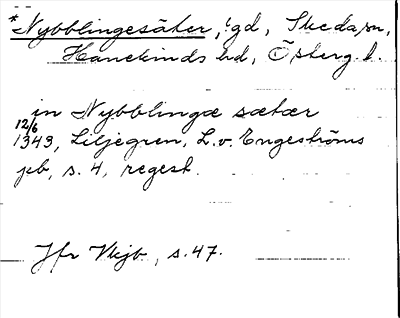 *Nybblingesäter, t gd, Skeda sn,
Hanekinds hd, Österg. l.
in Nybblingæ sætær
12/6
1343, Liljegren, L. v. Engeströms
pb, s. 4, regest.
Jfr Vkjb, s. 47.